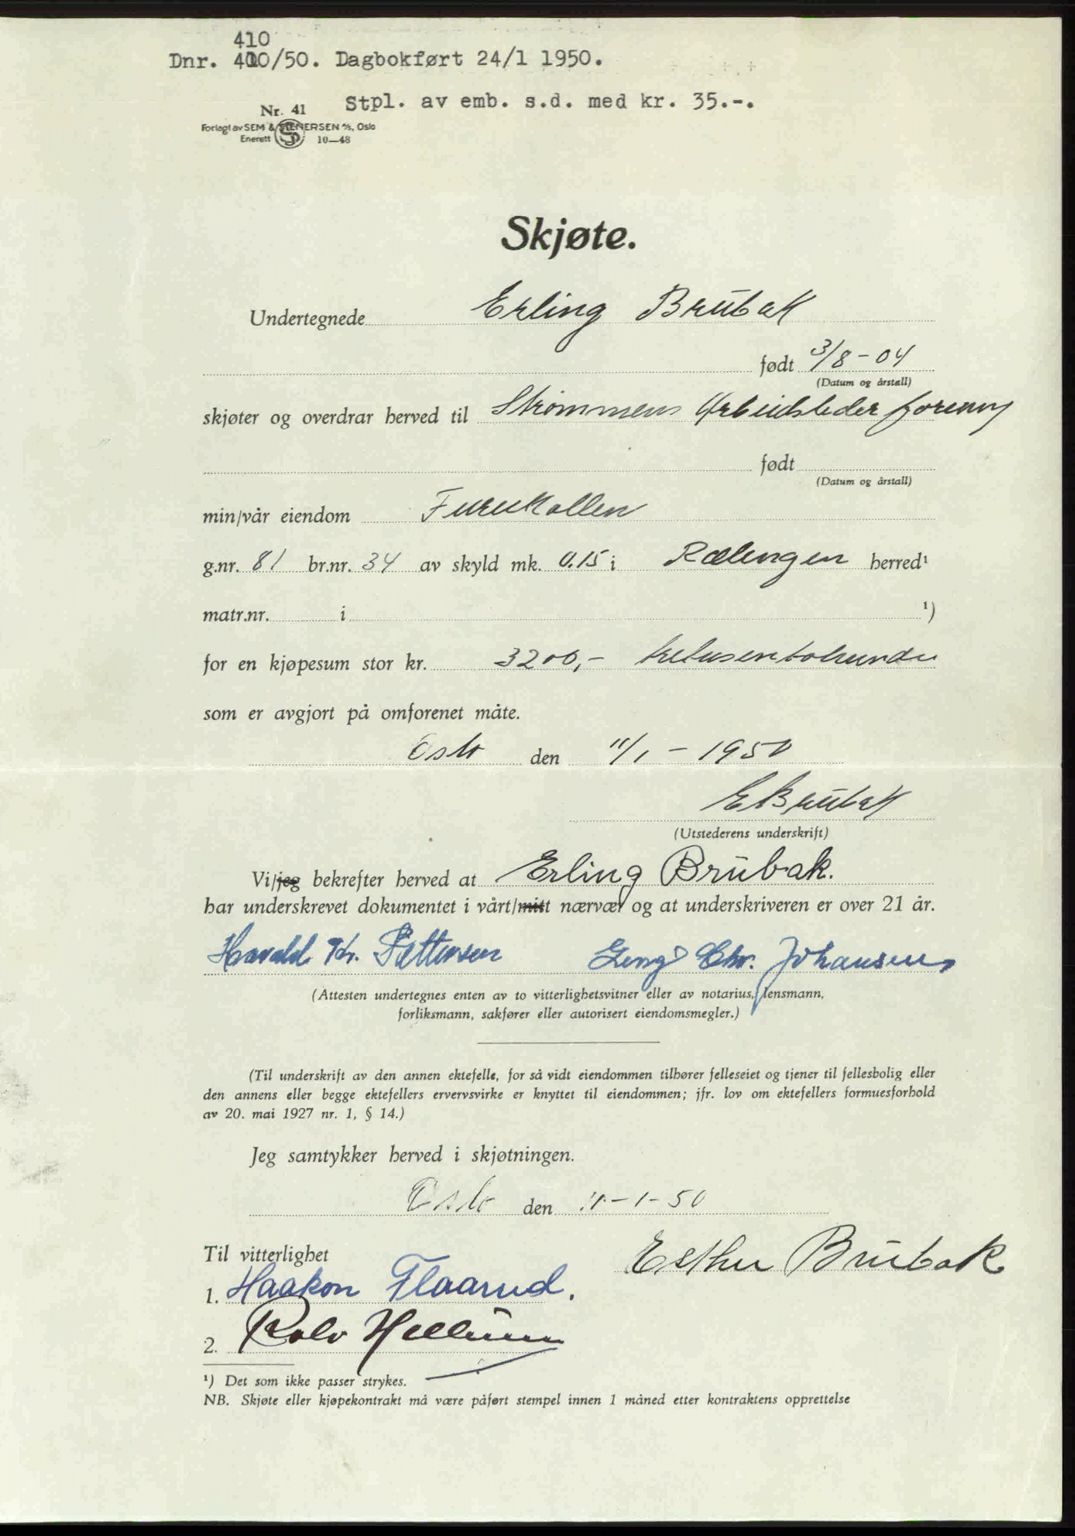 410
Dnr. 410/50. Dagbokført 24/1 1950.
Stpl. av emb. s.d. med kr. 35.-.
Nr. 41
Forlagt av SEM & STENERSEN A/S, Oslo
Enerett 10—48
Skjøte.
Undertegnede Erling Brubak
født 3/8-04
(Datum og årstall)
skjøter og overdrar herved til Strømmens Arbeidslederforening
født
(Datum og årstall)
min/vår eiendom Furukollen
g.nr. 81 br.nr. 34 av skyld mk. 0.15 i Rælingen herred¹
matr.nr. i ¹)
for en kjøpesum stor kr. 3200,- tretusentohundre
som er avgjort på omforenet måte.
Oslo den 11/1-1950
E Brubak
(Utstederens underskrift)
Vi/jeg bekrefter herved at Erling Brubak.
har underskrevet dokumentet i vårt/mitt nærvær og at underskriveren er over 21 år.
Harald Kr. Pettersen Chr. Johansen
(Attesten undertegnes enten av to vitterlighetsvitner eller av notarius, lensmann,
forliksmann, sakfører eller autorisert eiendomsmegler.)
(Til underskrift av den annen ektefelle, for så vidt eiendommen tilhører felleseiet og tjener til fellesbolig eller
den annens eller begge ektefellers ervervsvirke er knyttet til eiendommen; jfr. lov om ektefellers formuesforhold
av 20. mai 1927 nr. 1, § 14.)
Jeg samtykker herved i skjøtningen.
Oslo den 11-1-50
Til vitterlighet
Esther Brubak
1. Haakon Flaarud.
2. Rolv Hellum
¹) Det som ikke passer strykes.
NB. Skjøte eller kjøpekontrakt må være påført stempel innen 1 måned etter kontraktens opprettelse